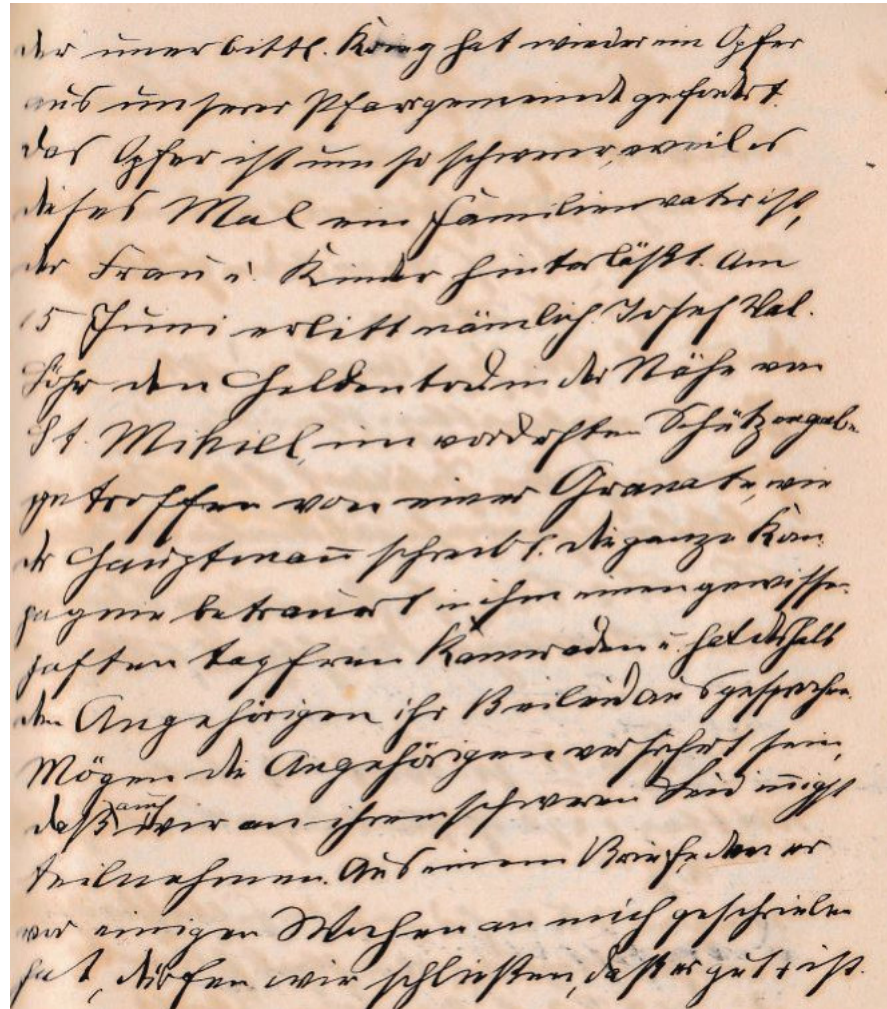 der unerbittl. Krieg hat wieder ein Opfer
aus unserer Pfarrgemeinde gefordert.
Das Opfer ist um so schwerer, weil es
dieses Mal ein Familienvater ist,
der Frau u. Kinder hinterläßt. Am
15 Juni erlitt nämlich Josef Val.
Löhr den Heldentod in der Nähe von
St. Mihiel, im vordersten Schützengrabe
getroffen von einer Granate, wie
der Hauptmann schreibt. Die ganze Kom
pagnie betrauert in ihm einen gewissen
haften tapfren Kameraden u. hat deshalb
den Angehörigen ihr Beileid ausgesprochen.
Mögen die Angehörigen versichert sein,
daß auch wir an ihrem schweren Leid innigst
teilnehmen. Aus einem Briefe, den er
vor einigen Wochen an mich geschrieben
hat, dürfen wir schließen, daß er gut ist.